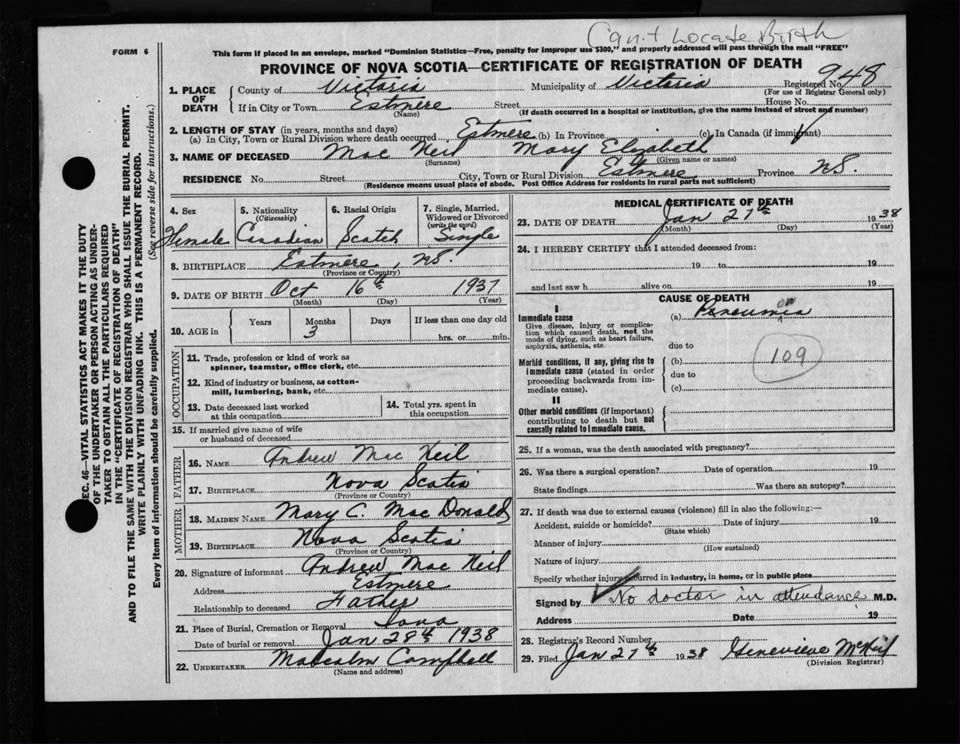 Can't Locate Birth
FORM 6
This form if placed in an envelope, marked "Dominion Statistics—Free, penalty for improper use $300," and properly addressed will pass through the mail "FREE"
PROVINCE OF NOVA SCOTIA—CERTIFICATE OF REGISTRATION OF DEATH
1. PLACE OF DEATH
County of Victoria Municipality of Victoria Registered No. 948
(For use of Registrar General only)
If in City or Town Estmere Street House No.
(Name) (If death occurred in a hospital or institution, give the name instead of street and number)
2. LENGTH OF STAY (in years, months and days)
(a) In City, Town or Rural Division where death occurred Estmere (b) In Province (c) In Canada (if immigrant)
3. NAME OF DECEASED Mac Neil Mary Elizabeth
(Surname) (Given name or names)
RESIDENCE No. Street City, Town or Rural Division Estmere Province N.S.
(Residence means usual place of abode. Post Office Address for residents in rural parts not sufficient)
4. Sex
Female
5. Nationality (Citizenship)
Canadian
6. Racial Origin
Scotch
7. Single, Married, Widowed or Divorced (write the word)
Single
8. BIRTHPLACE Estmere, N.S.
(Province or Country)
9. DATE OF BIRTH Oct 16th 1937
(Month) (Day) (Year)
10. AGE in Years Months Days If less than one day old
3 hrs. or min.
OCCUPATION
11. Trade, profession or kind of work as
spinner, teamster, office clerk, etc.
12. Kind of industry or business, as cotton-
mill, lumbering, bank, etc.
13. Date deceased last worked
at this occupation
14. Total yrs. spent in
this occupation
15. If married give name of wife
or husband of deceased
FATHER
16. NAME Andrew Mac Neil
17. BIRTHPLACE Nova Scotia
(Province or Country)
MOTHER
18. MAIDEN NAME Mary C. Mac Donald
19. BIRTHPLACE Nova Scotia
(Province or Country)
20. Signature of informant Andrew Mac Neil
Address Estmere
Relationship to deceased Father
21. Place of Burial, Cremation or Removal Iona
Date of burial or removal Jan 28th 1938
22. UNDERTAKER Malcolm Campbell
(Name and address)
MEDICAL CERTIFICATE OF DEATH
23. DATE OF DEATH Jan 27th 1938
(Month) (Day) (Year)
24. I HEREBY CERTIFY that I attended deceased from:
19 to 19
and last saw h alive on 19
CAUSE OF DEATH
I
Immediate cause
Give disease, injury or complica-
tion which caused death, not the
mode of dying, such as heart failure,
asphyxia, asthenia, etc.
(a) Pneumonia
due to
Morbid conditions, if any, giving rise to
immediate cause (stated in order
proceeding backwards from im-
mediate cause).
(b)
109
due to
(c)
II
Other morbid conditions (if important)
contributing to death but not
causally related to immediate cause.
25. If a woman, was the death associated with pregnancy?
26. Was there a surgical operation? Date of operation 19
State findings Was there an autopsy?
27. If death was due to external causes (violence) fill in also the following:—
Accident, suicide or homicide? Date of injury 19
(State which)
Manner of injury
(How sustained)
Nature of injury
Specify whether injury occurred in industry, in home, or in public place
Signed by No doctor in attendance M.D.
Address Date 19
28. Registrar's Record Number
29. Filed Jan 27th 1938 Genevieve McNeil
(Division Registrar)
SEC. 46—VITAL STATISTICS ACT MAKES IT THE DUTY
OF THE UNDERTAKER OR PERSON ACTING AS UNDER-
TAKER TO OBTAIN ALL THE PARTICULARS REQUIRED
IN THE "CERTIFICATE OF REGISTRATION OF DEATH"
AND TO FILE THE SAME WITH THE DIVISION REGISTRAR WHO SHALL ISSUE THE BURIAL PERMIT.
WRITE PLAINLY WITH UNFADING INK. THIS IS A PERMANENT RECORD.
Every item of information should be carefully supplied. (See reverse side for instructions.)